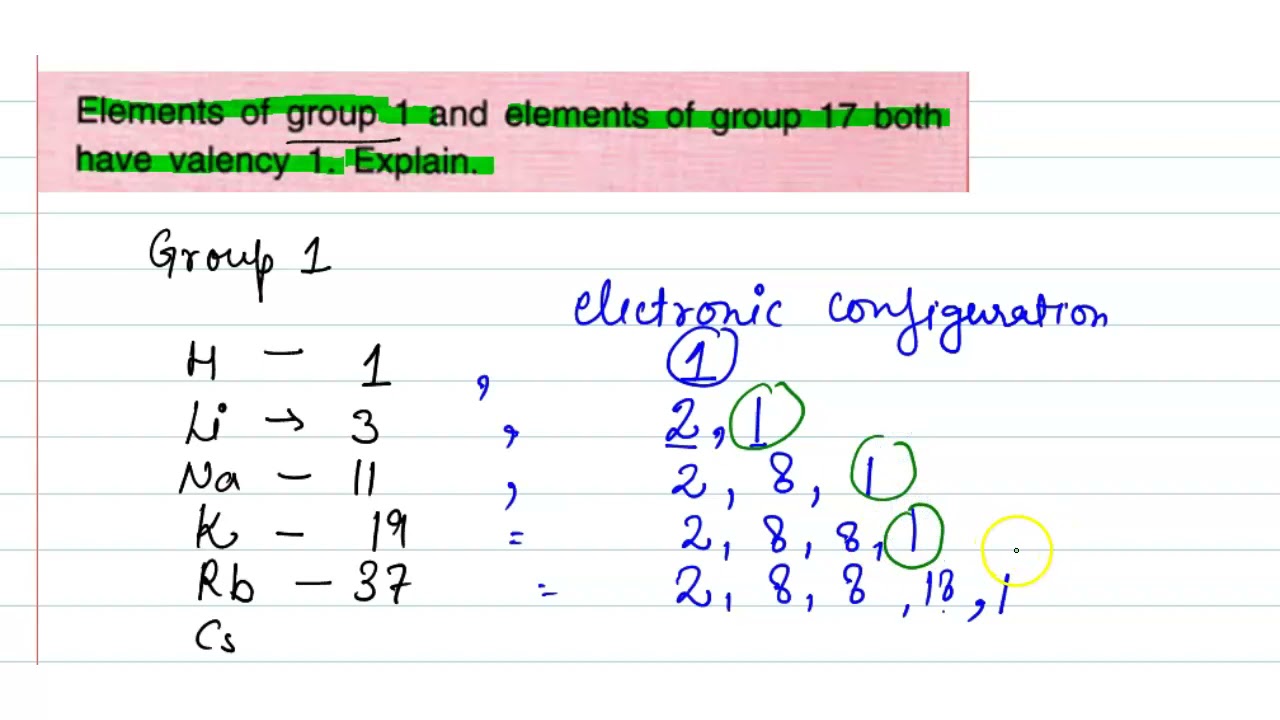 Elements of group 1 and elements of group 17 both
have valency 1. Explain.
Group 1
electronic configuration
H — 1 , 1
Li → 3 , 2, 1
Na — 11 , 2, 8, 1
K — 19 = 2, 8, 8, 1
Rb — 37 = 2, 8, 8, 18, 1
Cs